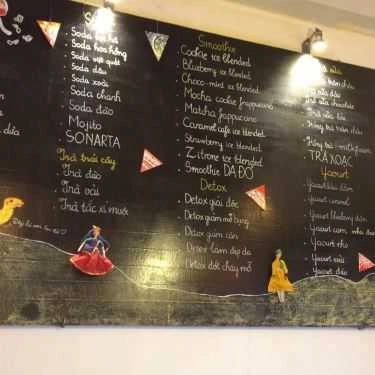 Soda
Soda hoa hồng
Soda việt quất
Soda dâu
Soda xoài
Soda chanh
Soda đào
Mojito
SONARTA
Trà trái cây
Trà đào
Trà vải
Trà tắc xí muội
Smoothie
Cookie ice blended
Blueberry ice blended
Choco-mint ice blended
Mocha cookie frappucino
Matcha frappucino
Caramel café ice blended
Strawberry ice blended
Zitrone ice blended
Smoothie DA ĐỎ
Detox
Detox giải độc
Detox giảm mỡ bụng
Detox giảm cân
Detox làm đẹp da
Detox đốt cháy mỡ
Trà sữa
Trà sữa dâu
Trà sữa chocolate
Hồng trà
TRÀ XOẠC
Yaourt
Yaourt caramel
Yaourt cam
Yaourt nho
Yaourt dâu